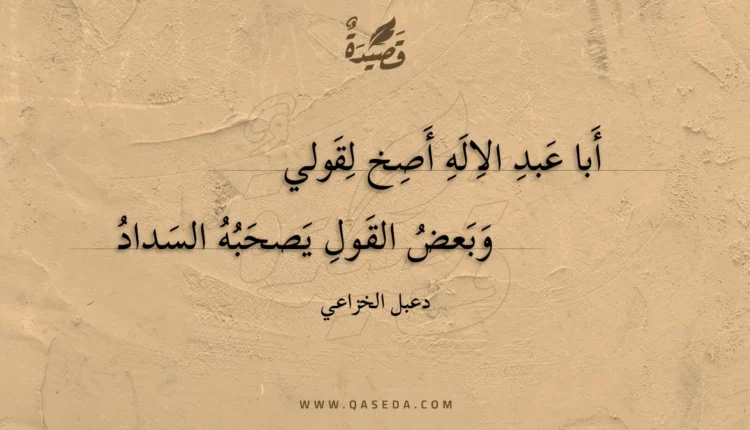 قَصِيدَةٌ
أَبا عَبدِ الإِلَهِ أَصِخ لِقَولي
وَبَعضُ القَولِ يَصحَبُهُ السَدادُ
دعبل الخزاعي
WWW.QASEDA.COM